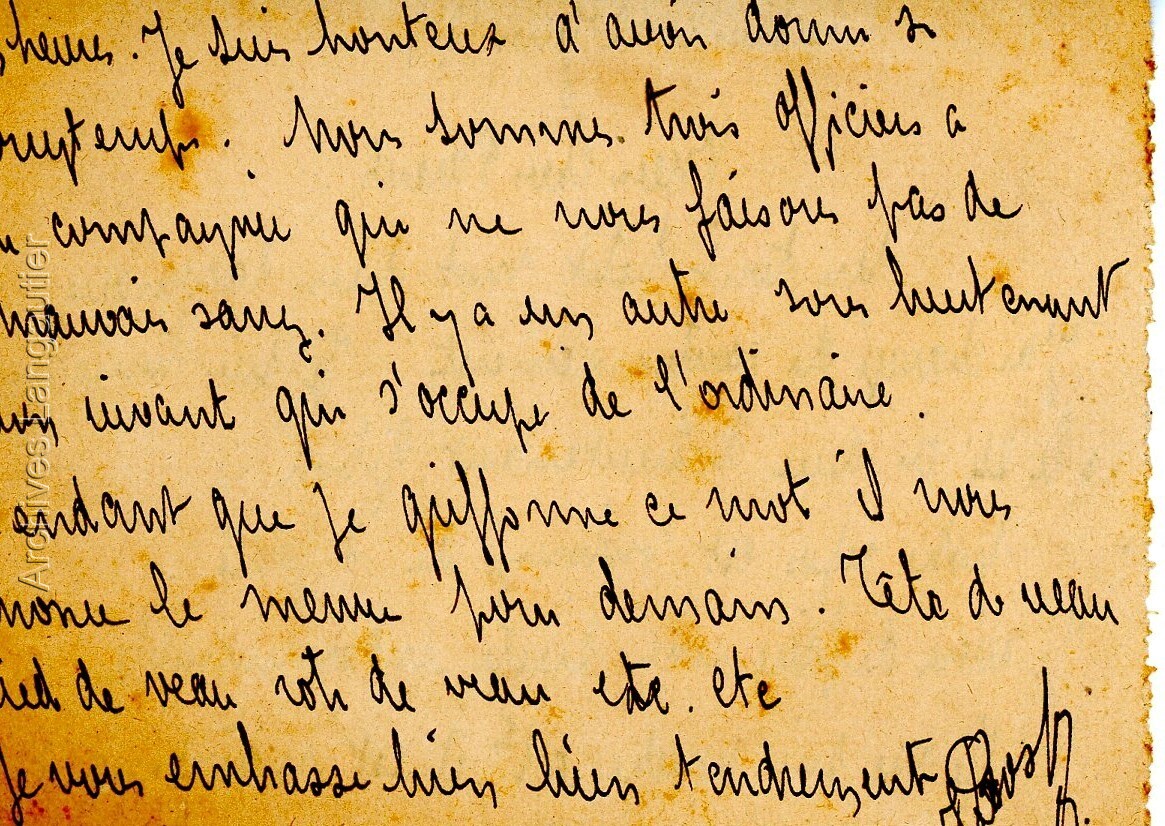 heures. Je suis honteux d'avoir dormi si
longtemps. Nous sommes trois officiers a
compagnie qui ne nous faisons pas de
mauvais sang. Il y a un autre sous lieutenant
qui s'occupe de l'ordinaire.
endant que je griffonne ce mot il nous
nonce le menu pour demain. Tête de veau
ied de veau roti de veau etc. etc
Je vous embrasse bien bien tendrement
Archives Langautier